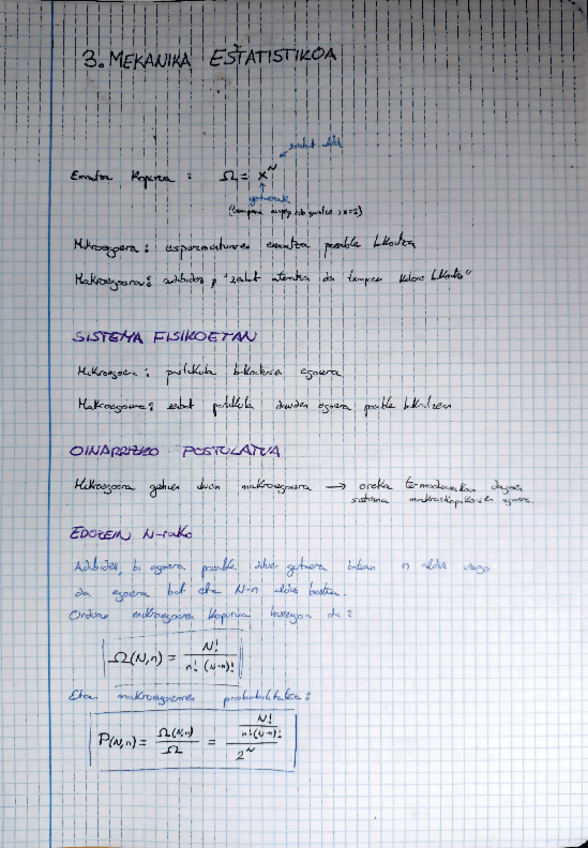 3. MEKANIKA ESTATISTIKOA
zenbat aldiz
Emaitza Kopurua : Ω = x^N
gertaerak
(txanpona aurpegi edo gurutze, x=2)
Mikroegoera : esperimentuaren emaitza posible bakoitza
Makroegoera : adibidez, "zenbat atera da txanpon bakoitza"
SISTEMA FISIKOETAN
Mikroegoera : partikula bakoitzaren egoera
Makroegoera : zenbat partikula dauden egoera posible bakoitzean
OINARRIZKO POSTULATUA
Mikroegoera gehien duen makroegoera → oreka termodinamikoan dagoen
sistema makroskopikoaren egoera.
EDOZEIN N-rako
Adibidez, bi egoera posible ditu gertaera batean n aldiz
da egoera bat eta N-n aldiz bestea.
Orduan makroegoera kopurua hurrengoa da :
Ω(N,n) = N! / n! (N-n)!
Eta makroegoeraren probabilitatea :
P(N,n) = Ω(N,n) / Ω = (N! / n!(N-n)!) / 2^N